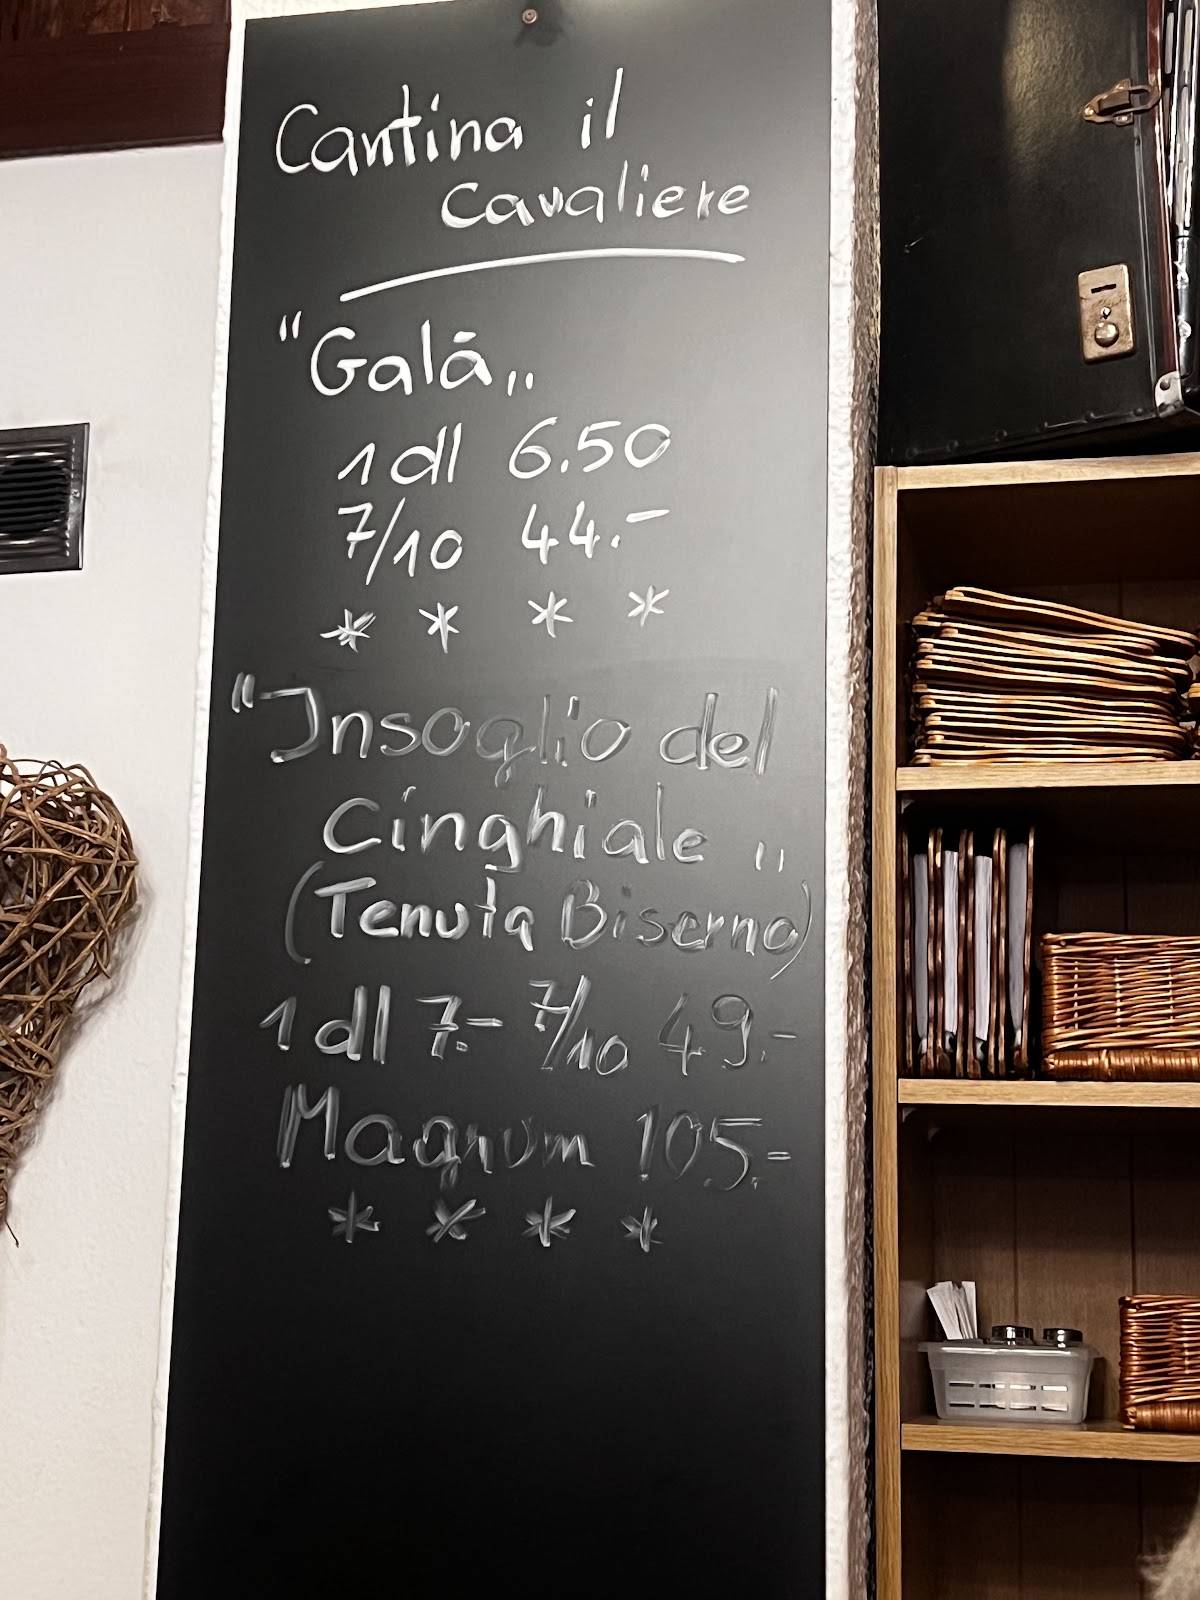 Cantina il
Cavaliere
"Galà"
1 dl 6.50
7/10 44.-
* * * *
"Insoglio del
Cinghiale"
(Tenuta Biserno)
1 dl 7.- 7/10 49.-
Magnum 105.-
* * * *